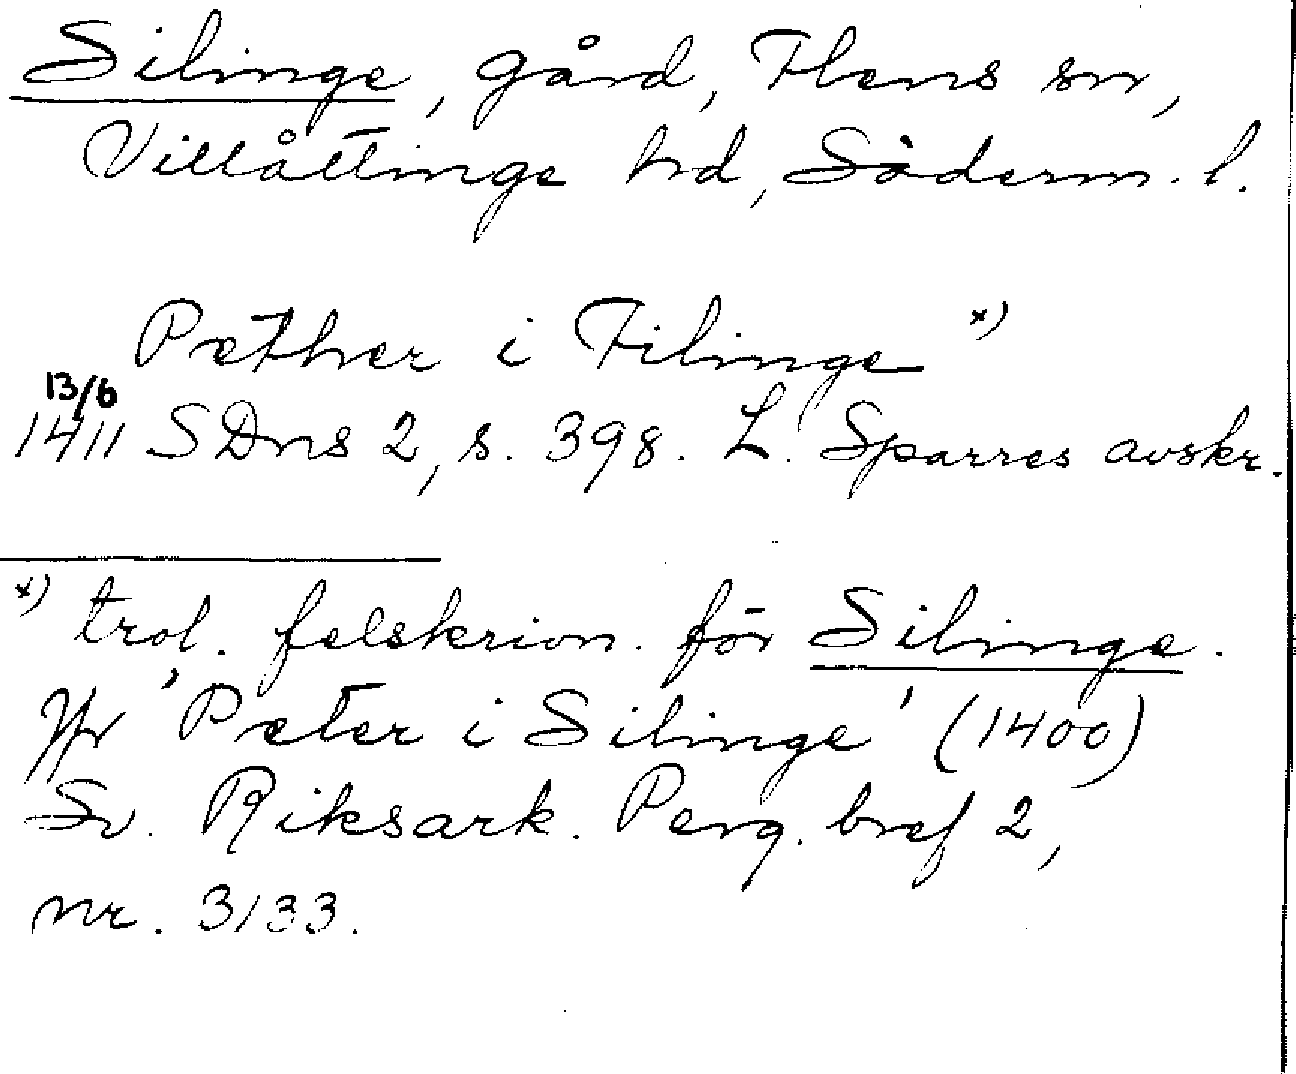 Silinge, gård, Flens sn,
Villåttinge hd, Söderm. l.
Pæther i Filinge x)
13/6
1411 SDns 2, s. 398. L. Sparres avskr.
x) trol. felskrivn. för Silinge.
Jfr 'Pæter i Silinge' (1400)
Sv. Riksark. Perg. bref 2,
nr. 3133.